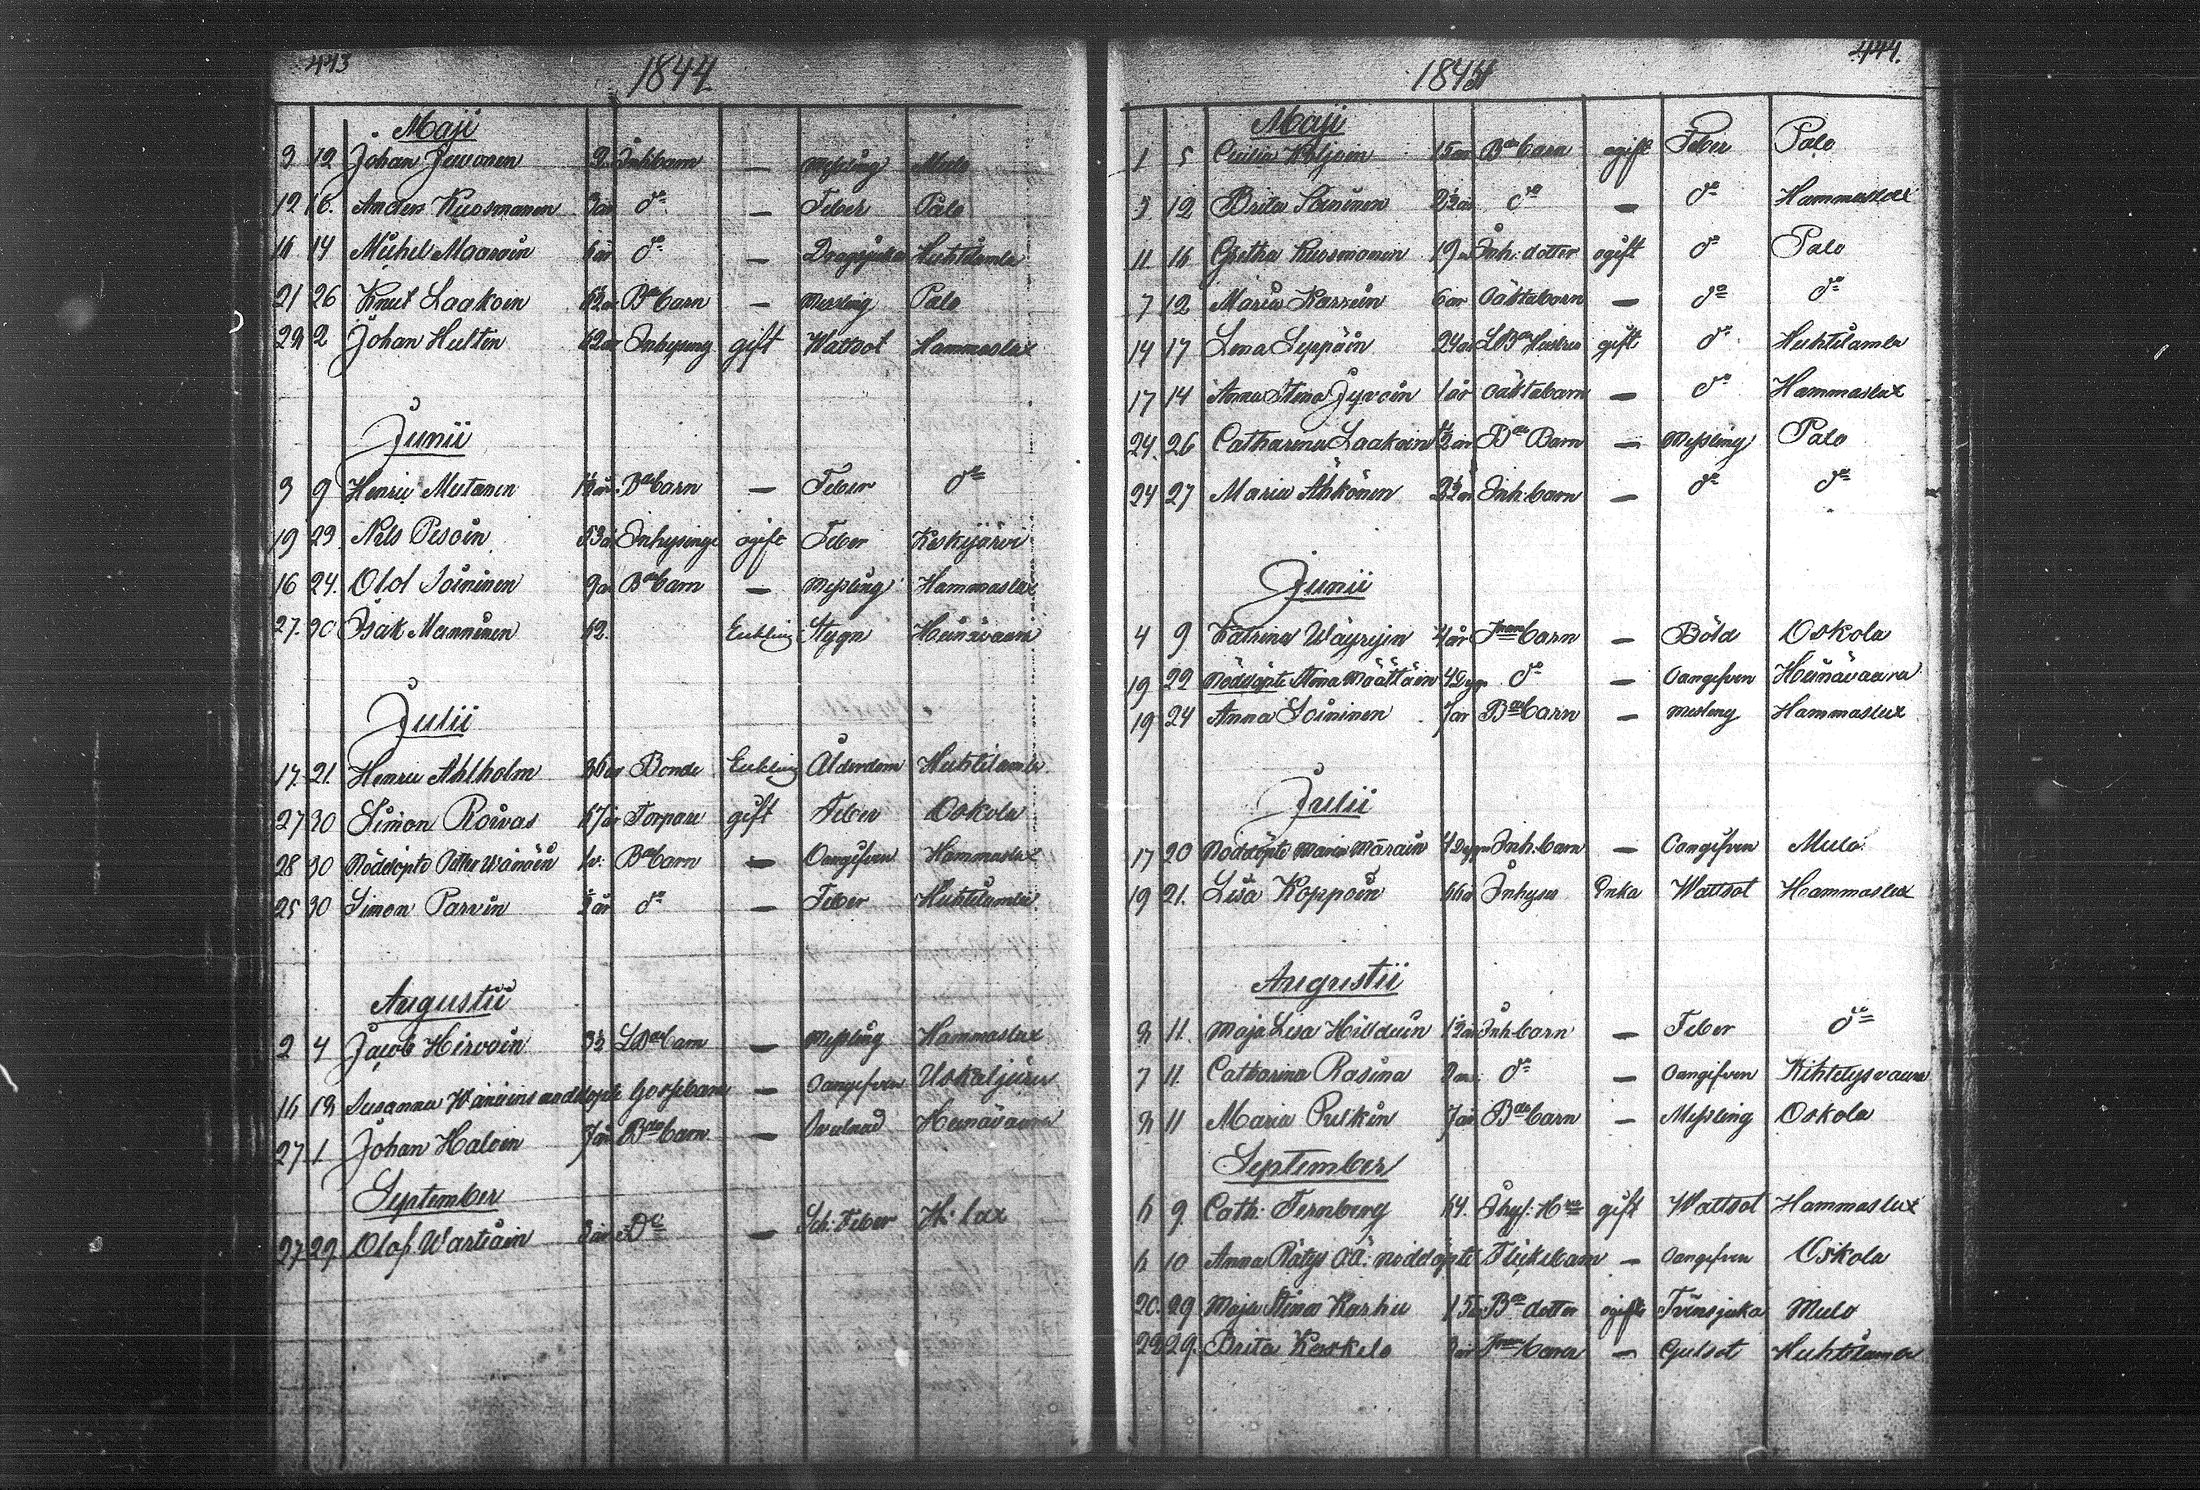 443
1844
Maji
3 12 Johan Juvonen 2 Inh barn — Messling Mulo
12 16. Anders Kuosmanen 3 år do — Feber Palo
11 14 Michel Maaroin 6 år do — Dragsjuka Huhtilambi
21 26 Knut Laakoin Bde barn — Messling Palo
29 2 Johan Hultin 62 år Inhysing gift Wattsot Hammaslax
Junii
3 9 Henric Mutanen 1½ år Bde barn — Feber do
19 23 Nils Pesoin 53 år Inhysinge ogift Feber Keskijärvi
16 24. Olof Soininen 9 år Bde barn — Messling Hammaslax
27. 30 Isak Manninen 62. Enkling Stygn Heinävaara
Julii
17. 21. Henric Ahlholm 86 år Bonde Enkling Ålderdom Huhtilambi
27 30 Simon Roivas 67 år Torpare gift Feber Oskola
28 30 Nöddöpte Petter Wänöin 1 v. Bde barn — Oangifven Hammaslax
25 30 Simon Parvin ½ år do — Feber Huhtilambi
Augustii
2 4 Jacob Hirvoin 3½ LBde barn — Messling Hammaslax
Susanna nöddöpte — Oangifven Uskaljärvi
27 1 Johan Haloin 7 år Bde barn — Heinävaara
September
27 29 Olof Wartiain 3 år Do — Sch: Feber H: lax
444.
1844
Maji
1 5 Cecilia Kiljoin 15 år Bde barn ogift Feber Palo
3 12 Brita Soininen 2½ år do — do Hammaslax
11 16 Gretha Kuosmanen 19 år Inh: dotter ogift do Palo
7 12 Maria Karvein 6 år Oäktabarn — do do
14 17 Lena Leppöin 24 år LBde Hustru gift do Huhtilambi
17 14 Anna Stina Jyvöin 1 år Oäktabarn — do Hammaslax
24. 26 Catharina Laakoin ½ år Bde Barn — Messling Palo
24 27 Maria Ähkönen 2½ år Inh: barn — do do
Junii
4 9 Catrina Wäyryin 4 år Tmans barn — Böld Oskola
19 22 Nöddöpte Stina Määttäin 4 Dygn do — Oangifven Heinävaara
19 24 Anna Soininen 7 år Bde barn — Mesling Hammaslax
Julii
17 20 Nöddöpte Maria Märäin 4 Dygn Inh. barn — Oangifven Mulo
19 21. Lisa Koppoin 66 år Inhyses Enka Wattsot Hammaslax
Augustii
8 11. Maja Lisa Hilduin 1½ år Inh. barn — Feber do
7 11. Catharina Rasina 2 år do — Oangifven Kihtelysvaara
8 11 Maria Pulkin 7 år Bde barn — Messling Oskola
September
6 9. Cath: Fernberg 64. Ihys: Hru gift Wattsot Hammaslax
6 10 Anna Rätys OÄ: nöddöpte Flickebarn — Oangifven Oskola
20. 29 Maja Stina Karhu 15 år Bde dotter ogift Tvinsjuka Mulo
22 29. Brita Koskelo 3 år Tmans barn — Gulsot Huhtilambi